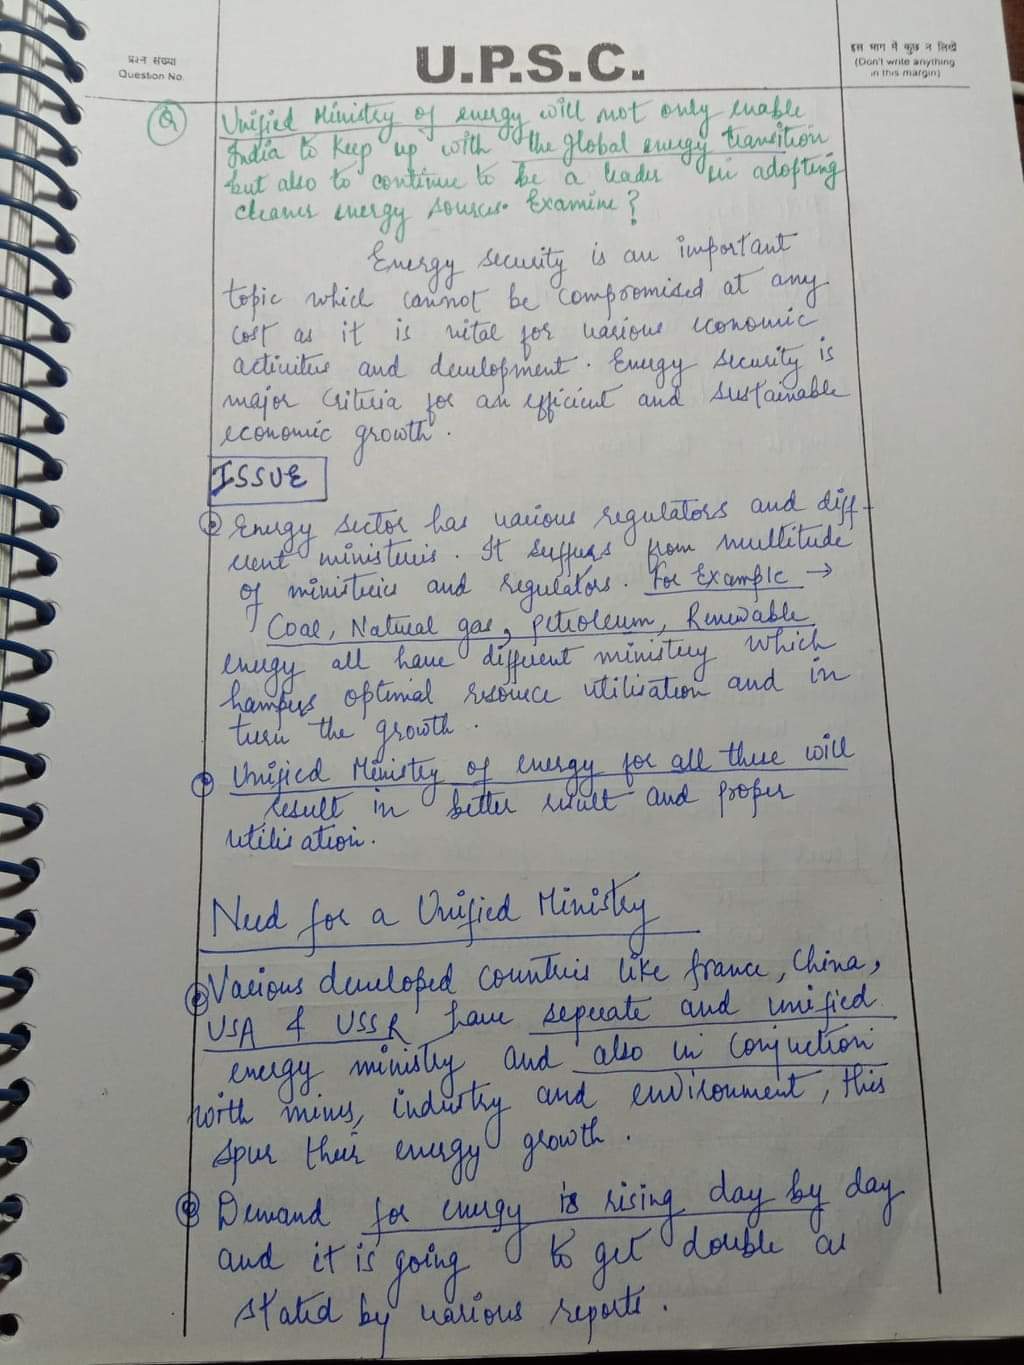 प्रश्न संख्या
Question No.
U.P.S.C.
इस भाग में कुछ न लिखें
(Don't write anything
in this margin)
Q
Unified Ministry of energy will not only enable
India to keep up with the global energy transition
but also to continue to be a leader in adopting
cleaner energy sources. Examine?
Energy security is an important
topic which cannot be compromised at any
cost as it is vital for various economic
activities and development. Energy security is
major criteria for an efficient and sustainable
economic growth.
ISSUE
Energy sector has various regulators and diff-
erent ministeries. It suffers from multitude
of ministries and regulators. For Example →
Coal, Natural gas, petroleum, Renewable
energy all have different ministery which
hampers optimal resource utilisation and in
turn the growth.
Unified Ministry of energy for all these will
result in better result and proper
utilisation.
Need for a Unified Ministry
Various developed countries like france, China,
USA & USSR have seperate and unified
energy ministry and also in conjuction
with mines, industry and environment, this
spur their energy growth.
Demand for energy is rising day by day
and it is going to get double as
stated by various reports.